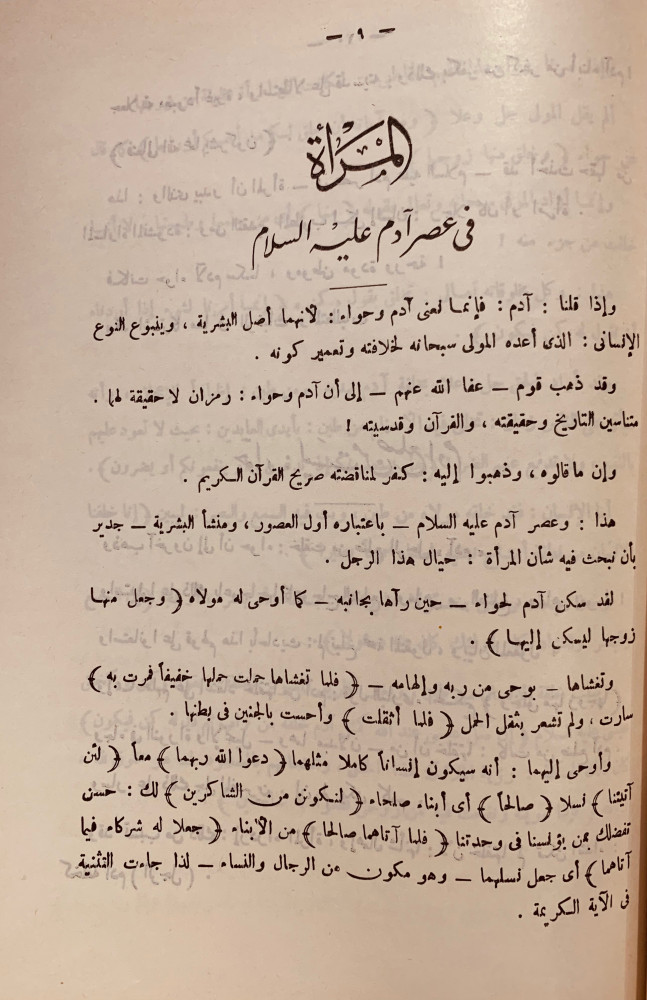 — ٩ —
المرأة
فى عصر آدم عليه السلام
وإذا قلنا : آدم : فإنما نعنى آدم وحواء : لأنهما أصل البشرية ، وينبوع النوع
الإنسانى : الذى أعده المولى سبحانه لخلافته وتعمير كونه .
وقد ذهب قوم — عفا الله عنهم — إلى أن آدم وحواء : رمزان لا حقيقة لهما .
متناسين التاريخ وحقيقته ، والقرآن وقدسيته !
وإن ما قالوه ، وذهبوا إليه : كفر لمناقضته صريح القرآن الكريم .
هذا : وعصر آدم عليه السلام — باعتباره أول العصور ، ومنشأ البشرية — جدير
بأن نبحث فيه شأن المرأة : حيال هذا الرجل .
لقد سكن آدم لحواء — حين رآها بجانبه — كما أوحى له مولاه ﴿ وجعل منها
زوجها ليسكن إليها ﴾ .
وتغشاها — بوحى من ربه وإلهامه — ﴿ فلما تغشاها حملت حملها خفيفاً فمرت به ﴾
سارت ، ولم تشعر بثقل الحمل ﴿ فلما أثقلت ﴾ وأحست بالجنين فى بطنها .
وأوحى إليهما : أنه سيكون إنساناً كاملا مثلهما ﴿ دعوا الله ربهما ﴾ معاً ﴿ لئن
آتيتنا ﴾ نسلا ﴿ صالحاً ﴾ أى أبناء صلحاء ﴿ لنكونن من الشاكرين ﴾ لك : حسن
تفضلك بمن يؤنسنا فى وحدتنا ﴿ فلما آتاهما صالحا ﴾ من الأبناء ﴿ جعلا له شركاء فيما
آتاهما ﴾ أى جعل نسلهما — وهو مكون من الرجال والنساء — لذا جاءت التثنية
فى الآية الكريمة .